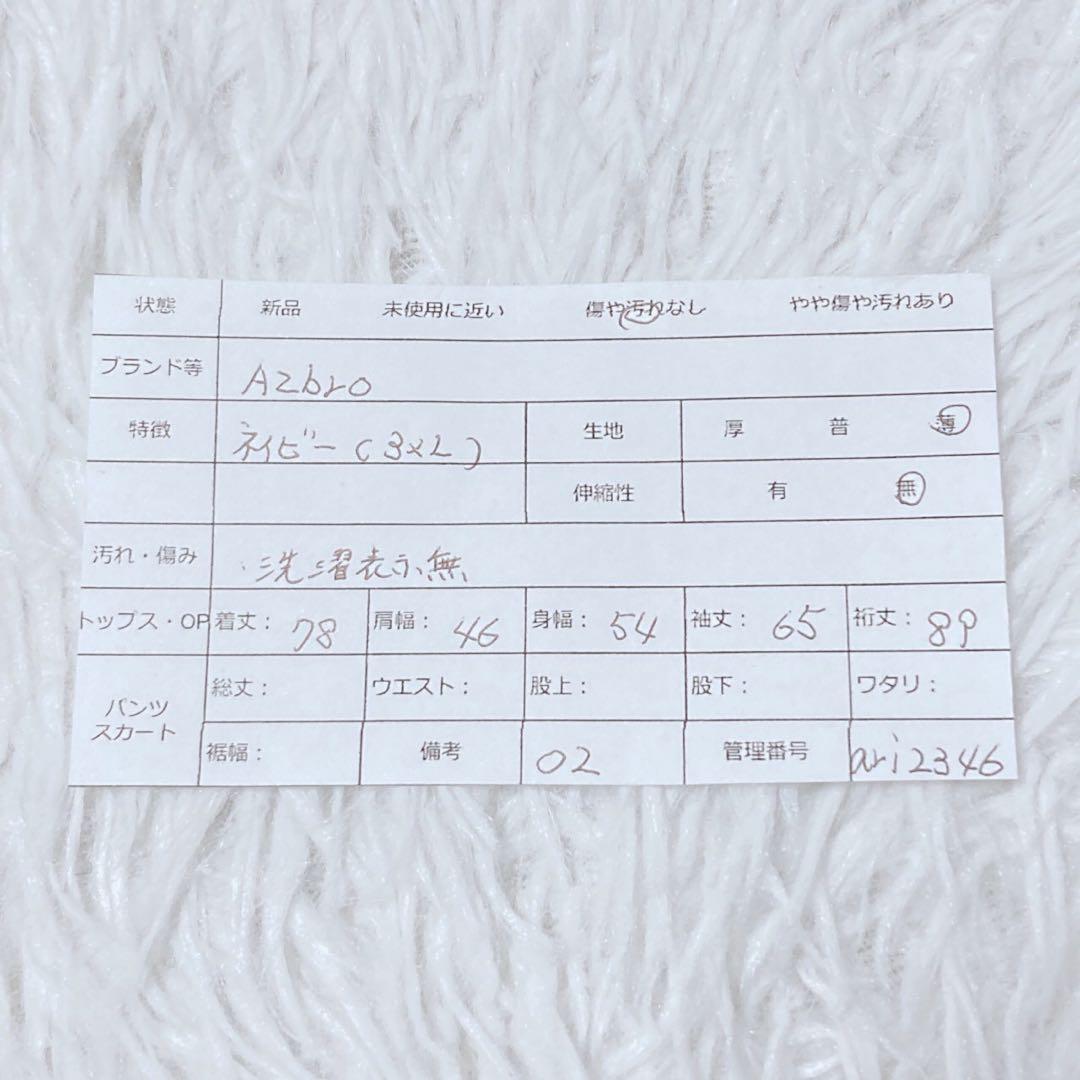 状態 新品 未使用に近い 傷や汚れなし やや傷や汚れあり
ブランド等 Azbro
特徴 ネイビー(3XL) 生地 厚 普 薄
伸縮性 有 無
汚れ・傷み ・洗濯表示無
トップス・OP 着丈: 78 肩幅: 46 身幅: 54 袖丈: 65 裄丈: 89
パンツ スカート 総丈: ウエスト: 股上: 股下: ワタリ:
裾幅: 備考 02 管理番号 ari2346